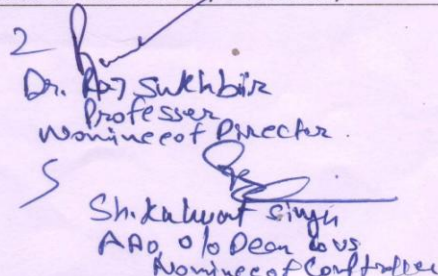 2
Dr. Raj Sukhbir
Professer
Nominee of Director.
5
Sh. Kulwant Singh
AAO, o/o Dean
Nominee of Comptroller